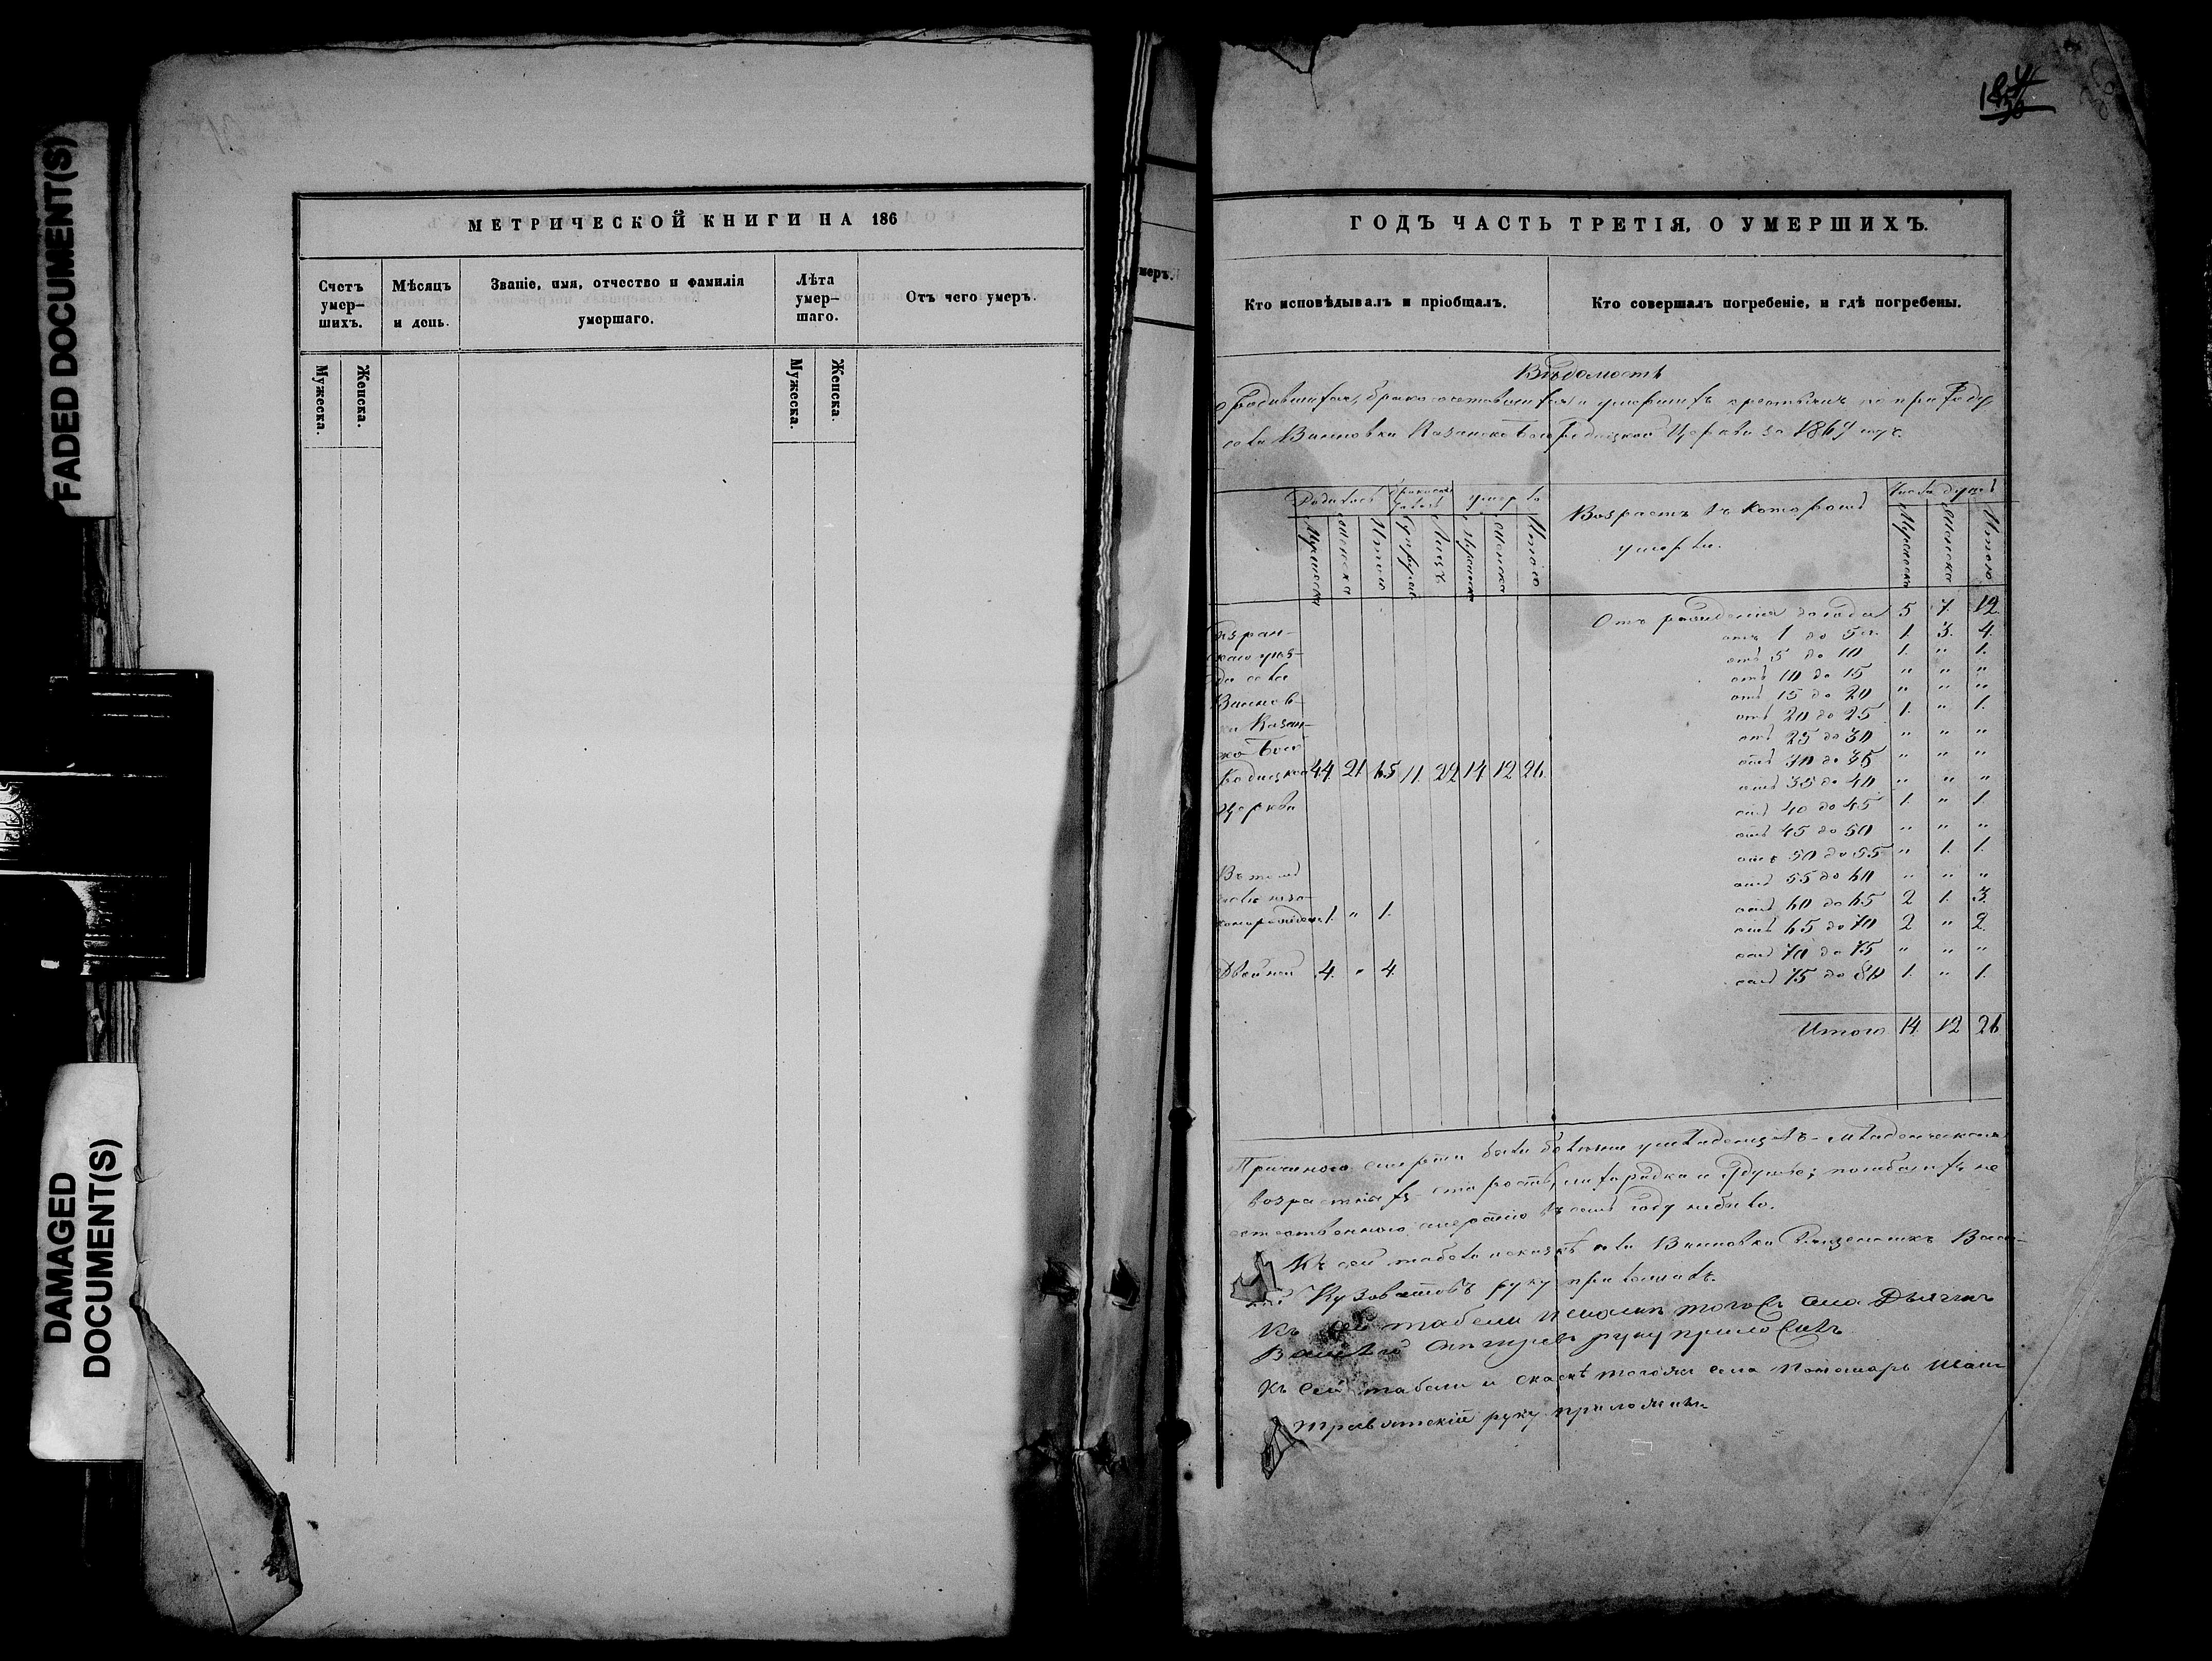 FADED DOCUMENT(S)
DAMAGED
DOCUMENT(S)
МЕТРИЧЕСКОЙ КНИГИ НА 186
Счетъ умер-шихъ.
Мѣсяцъ и день.
Званіе, имя, отчество и фамилія умершаго.
Лѣта умер-шаго.
Отъ чего умеръ.
Мужеска.
Женска.
Мужеска.
Женска.
ГОДЪ ЧАСТЬ ТРЕТІЯ, О УМЕРШИХЪ.
меръ.
Кто исповѣдывалъ и пріобщалъ.
Кто совершалъ погребеніе, и гдѣ погребены.
Вѣдомость
о родившихся, брако сочетавшихся и умершихъ крестьянъ по приходу
села Винновки Казанско Богородицкой Церкви за 1869 годъ.
Родилось
умерло
Мужеска
Женска
Итого
Лицъ
Женска
Итого
Возрастъ въ которомъ
умерли.
Число душъ
Мужеска
Женска
Итого
Отъ рожденія до года 5 7. 12.
отъ 1 до 5 1. 3. 4.
отъ 5 до 10 1. " 1.
отъ 10 до 15 " " "
отъ 15 до 20 " " "
отъ 20 до 25 1. " 1.
отъ 25 до 30 " " "
отъ 30 до 35 " " "
отъ 35 до 40 " " "
отъ 40 до 45 1. " 1.
отъ 45 до 50 " " "
отъ 50 до 55 " 1. 1.
отъ 55 до 60 " " "
отъ 60 до 65 2 1. 3.
отъ 65 до 70 2 " 2.
отъ 70 до 75 " " "
отъ 75 до 80 1. " 1.
Итого 14 12 26
Виннов-
ки Казан-
ско Бого
родицкой 44 21 65 11 22 14 12 26
Церкви
Въ томъ
числѣ неза-
конорожден. 1. " 1.
Двойней 4. " 4.
Причиною смерти были болѣзни у младенцевъ - младенческая,
возрастныхъ - старость, лихорадка и удушье; погибшихъ не
естественною смертію въ семъ году небыло.
Къ сей табели села Винновки Священникъ
Кузоватовъ руку приложилъ.
Къ сей табели того села Дьячекъ
руку приложилъ
Къ сей табели и того же села Пономарь
руку приложилъ